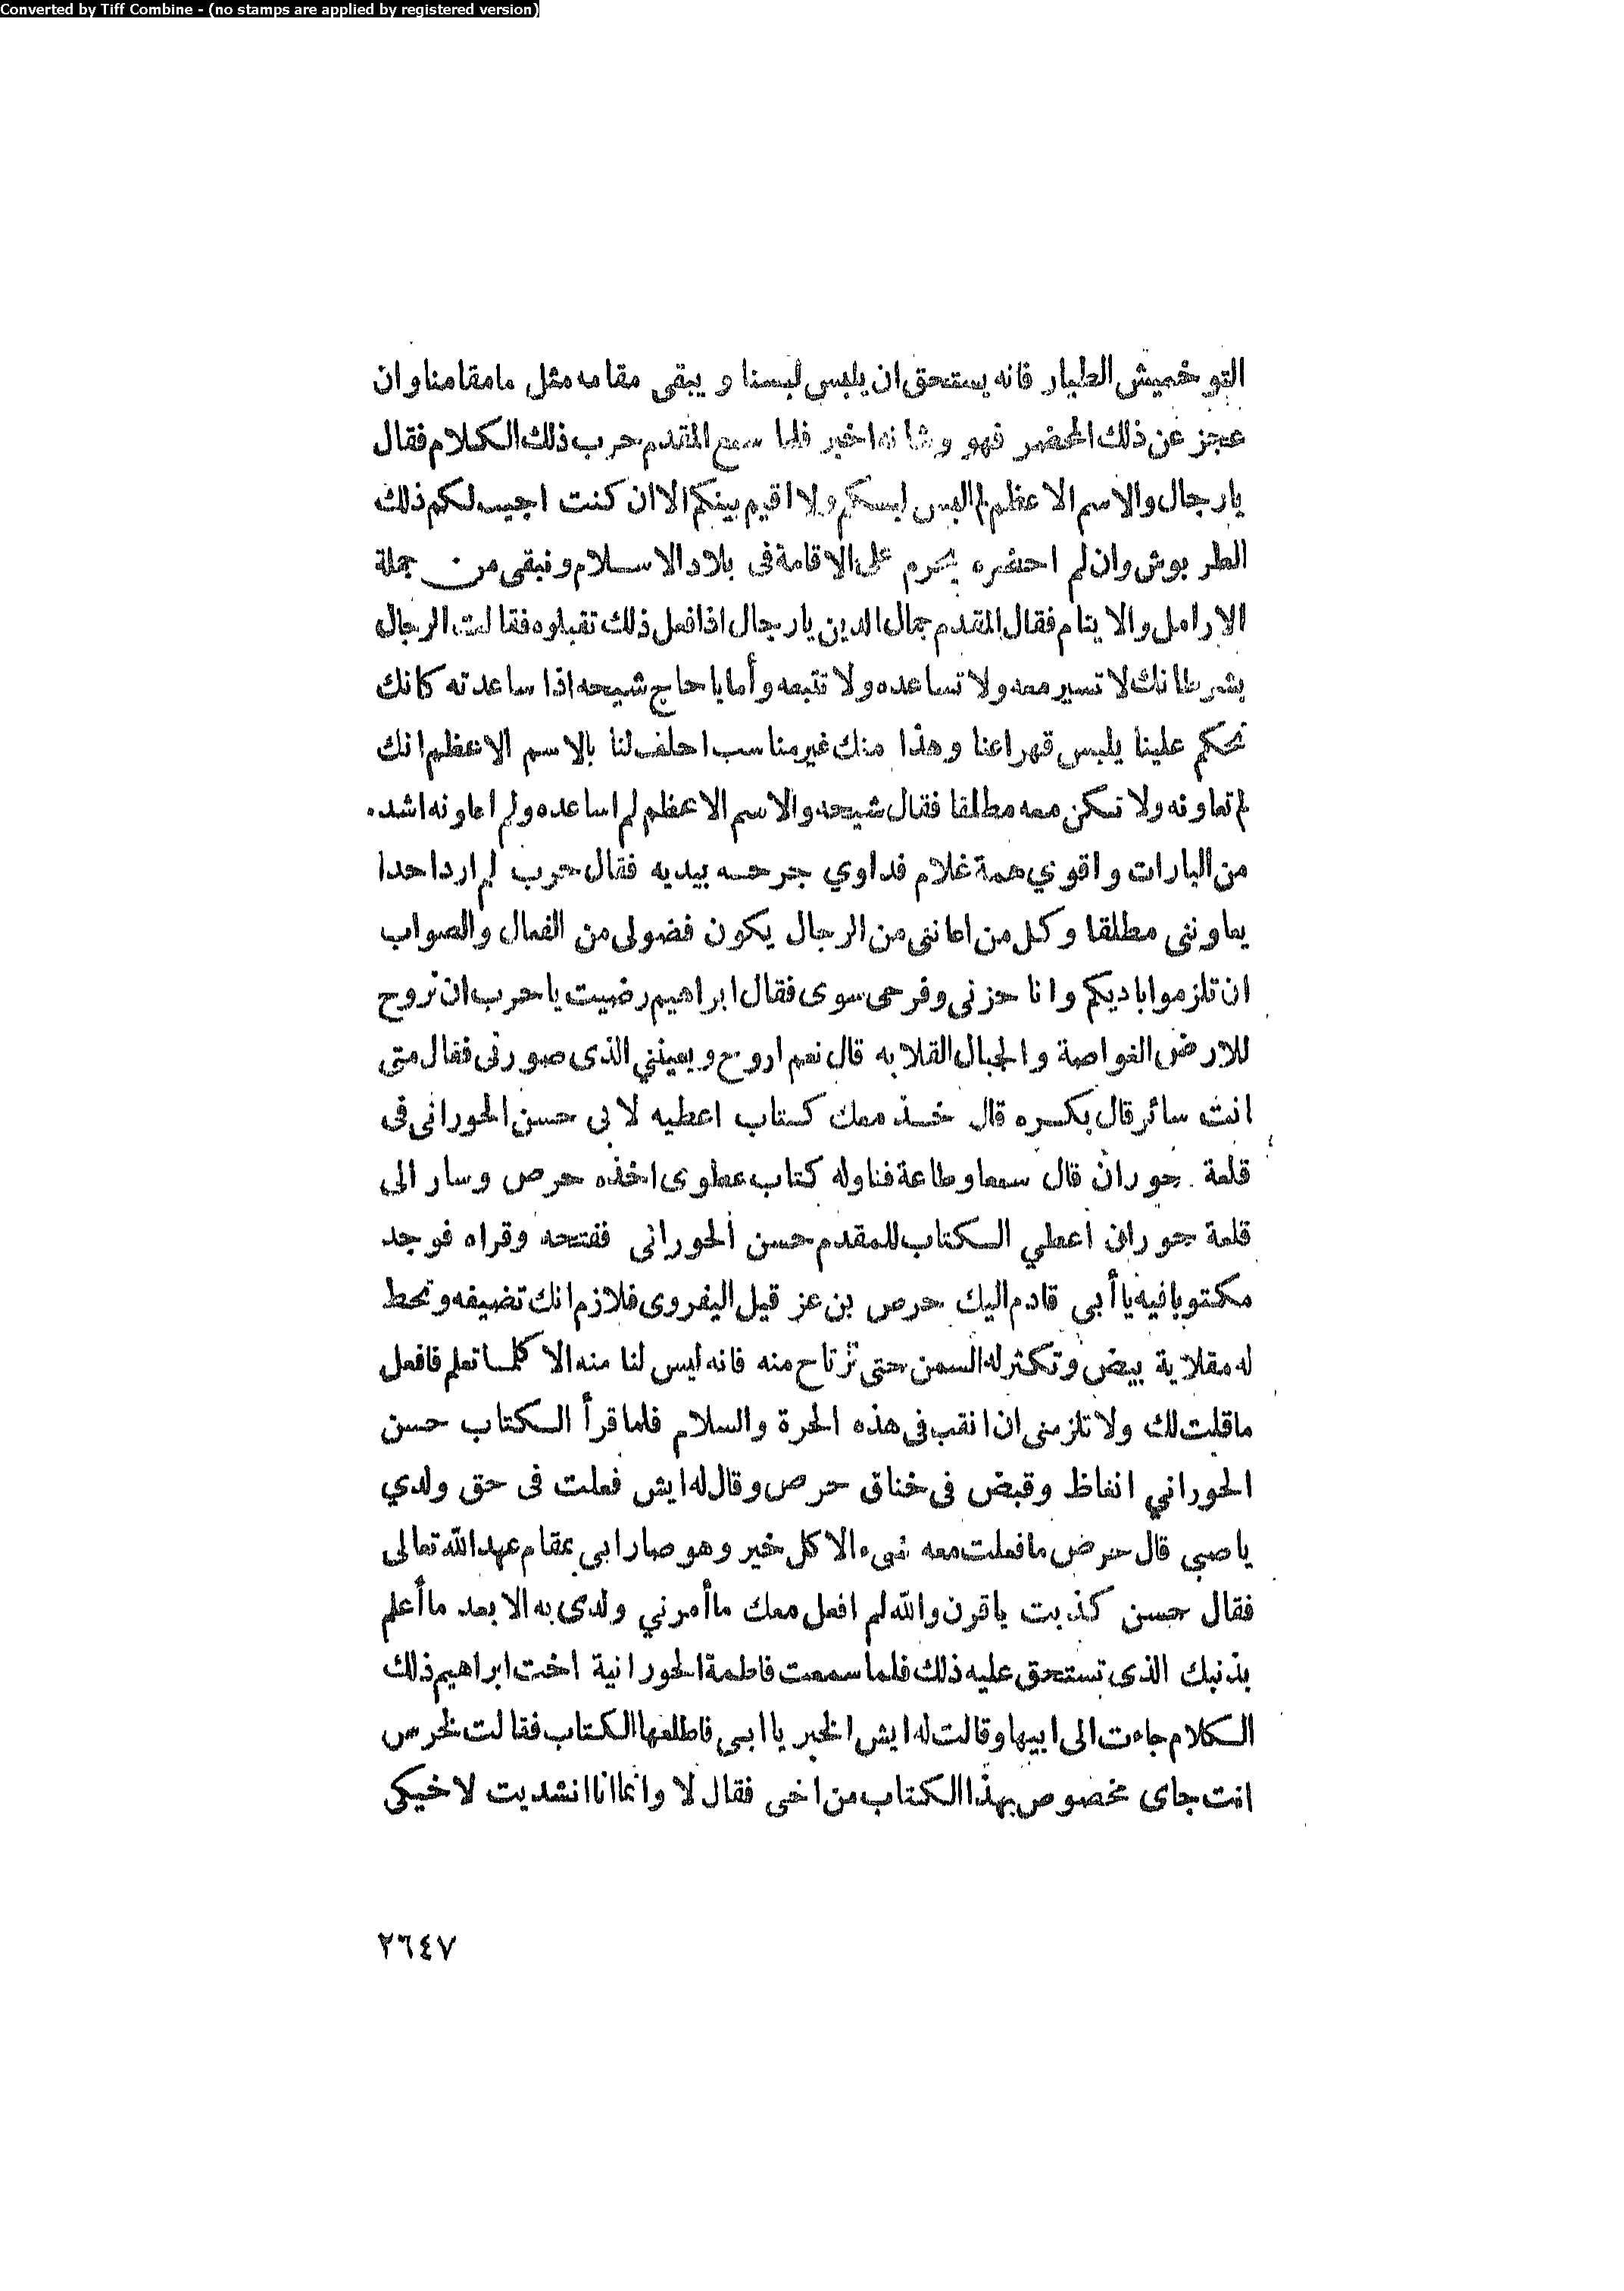 Converted by Tiff Combine - (no stamps are applied by registered version)
التو خميش الطيار فانه يستحق ان يلبس لبسنا و يبقى مقامه مثل مامقامنا وان
عجز عن ذلك المحضر فهو وشانه اخبر فلما سمع المقدم حرب ذلك الكلام فقال
يارجال والاسم الاعظم لم البس لبسكم ولا اقيم بينكم الا ان كنت اجيب لكم ذلك
الطربوش وان لم احضره يحرم على الاقامة فى بلاد الاسلام ونبقى من جملة
الارامل والايتام فقال المقدم جمال الدين يارجال اذا فعل ذلك تقبلوه فقالت الرجال
بشرط انك لا تسير معه ولا تساعده ولا تتبعه وأما يا حاج شيحه اذا ساعدته كانك
تحكم علينا يلبس قهرا عنا وهذا منك غير مناسب احلف لنا بالاسم الاعظم انك
لم تعاونه ولا تكن معه مطلقا فقال شيحه والاسم الاعظم لم اساعده ولم اعاونه اشده
من البارات واقوي همة غلام فداوي جرحه بيديه فقال حرب لم ارد احدا
يعاونني مطلقا وكل من اعانني من الرجال يكون فضولى من الفعال والصواب
ان تلزموا اباديكم وانا حزنى وفرحى سوى فقال ابراهيم رضيت ياحرب ان تروح
للارض الغواصة والجبال القلابه قال نعم اروح ويعينني الذى صورنى فقال متى
انت سائر قال بكره قال خذ معك كتاب اعطيه لابى حسن الحورانى فى
قلعة حوران قال سمعا وطاعة فناوله كتاب عطوى اخذه حرص وسار الى
قلعة حوران اعطي الكتاب للمقدم حسن الحورانى ففتحه وقراه فوجد
مكتوبا فيه يا أبى قادم اليك حرص بن عز قيل اليفروى فلازم انك تضيفه وتحط
له مقلاية بيض وتكثر له السمن حتى ترتاح منه فانه ليس لنا منه الا كلما تعلم فافعل
ماقلت لك ولا تلزمنى ان انقب فى هذه الحرة والسلام فلما قرأ الكتاب حسن
الحوراني انغاظ وقبض فى خناق حرص وقال له ايش فعلت فى حق ولدي
ياصبى قال حرص مافعلت معه شىء الا كل خير وهو صار ابى بمقام عهد الله تعالى
فقال حسن كذبت ياقرن والله لم افعل معك ماأمرني ولدى به الا بعد ماأعلم
بذنبك الذى تستحق عليه ذلك فلما سمعت فاطمة الحورانية اخت ابراهيم ذلك
الكلام جاءت الى ابيها وقالت له ايش الخبر يا ابى فاطلعها الكتاب فقالت لحرص
انت جاى مخصوص بهذا الكتاب من اخى فقال لا وانما انا انشديت لاخيكى
٢٦٤٧